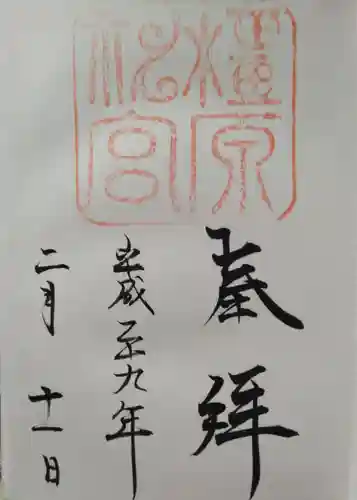 橿原神宮
奉拝
平成二十九年
二月十一日